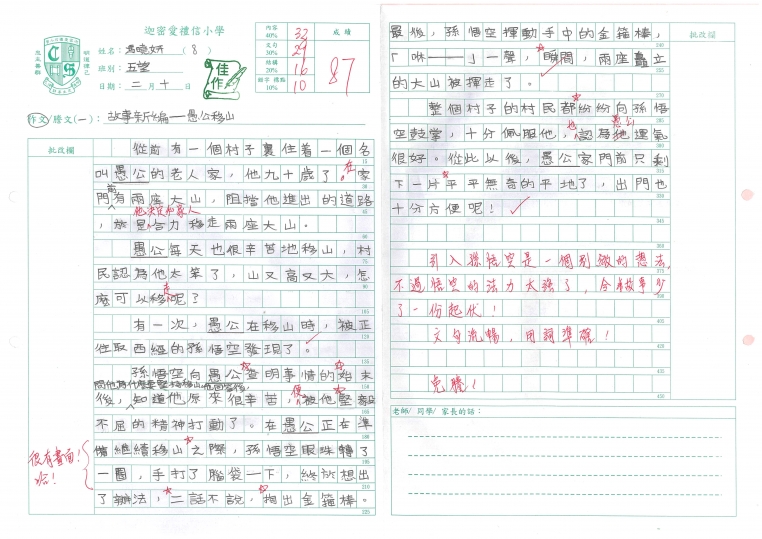 迦密愛禮信小學
姓名：馮曉妍（8）
班別：五望
日期：二月十日
佳作
內容 40% 32
文句 30% 29
結構 20% 16
錯字 標點 10% 10
成績
87
作文/謄文(一)：故事新編——愚公移山
批改欄
從前有一個村子裏住着一個名
叫愚公的老人家，他九十歲了，在家
門前有兩座大山，阻擋他進出的道路
他決定和家人
，合力移走兩座大山。
愚公每天也很辛苦地移山，村
民認為他太笨了，山又高又大，怎
麼可以移走呢？
有一次，愚公在移山時，被正
往取西經的孫悟空發現了。
孫悟空向愚公查明事情的始末
後，知道他原來很辛苦，便被他堅毅
不屈的精神打動了。在愚公正在準
備繼續移山之際，孫悟空眼珠轉了
一圈，手打了腦袋一下，終於想出
了辦法，二話不說，掏出金箍棒。
很有畫面！
哈！
最後，孫悟空揮動手中的金箍棒，
「咻——」一聲，瞬間，兩座矗立
的大山被揮走了。
整個村子的村民都紛紛向孫悟
空鼓掌，十分佩服他，也認為愚公運氣
很好。從此以後，愚公家門前只剩
下一片平平無奇的平地了，出門也
十分方便呢！
引入孫悟空是一個別緻的想法，
不過悟空的法力太強了，令故事少
了一份起伏！
文句流暢，用詞準確！
批改欄
老師/ 同學/ 家長的話：